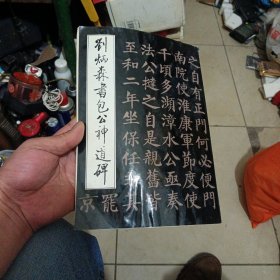 劉炳森書包公神道碑
之自有正門何必便門
南院使淮康軍節度使
千頃多瀕漳水公亟奏
法公撻之自是親舊皆
至和二年坐保任失其
龍
京